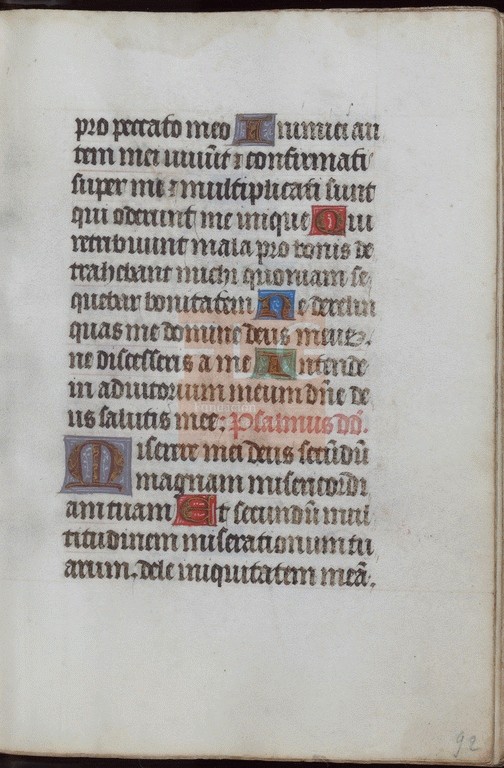 pro peccato meo Inimici au
tem mei viuūt ⁊ confirmati
super me ⁊ multiplicati sunt
qui oderunt me inique Qui
retribuunt mala pro bonis de
trahebant michi quoniam se
quebar bonitatem Ne derelin
quas me domine deus meus.
ne discesseris a me Intende
in adiutorium meum dn̄e de
us salutis mee: Psalmus dd̄.
Miserere mei deus secūdū
magnam misericordi
am tuam Et secundū mul
titudinem miserationum tu
arum. dele iniquitatem meā.
92